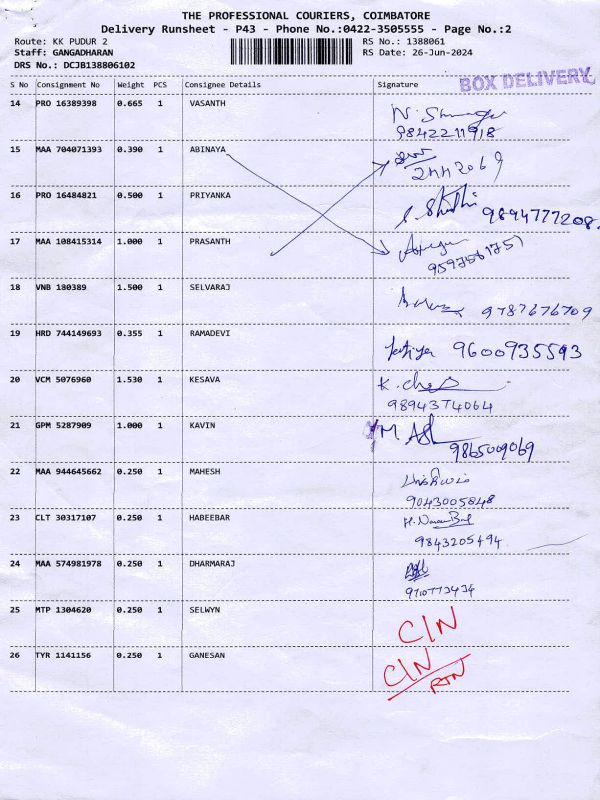 THE PROFESSIONAL COURIERS, COIMBATORE
Delivery Runsheet - P43 - Phone No.:0422-3505555 - Page No.:2
Route: KK PUDUR 2 RS No.: 1388061
Staff: GANGADHARAN RS Date: 26-Jun-2024
DRS No.: DCJB138806102
BOX DELIVERY
S No Consignment No Weight PCS Consignee Details Signature
14 PRO 16389398 0.665 1 VASANTH
9842211918
15 MAA 704071393 0.390 1 ABINAYA
16 PRO 16484821 0.500 1 PRIYANKA
9894777208.
17 MAA 108415314 1.000 1 PRASANTH
18 VNB 180389 1.500 1 SELVARAJ
9787676709
19 HRD 744149693 0.355 1 RAMADEVI
9600935593
20 VCM 5076960 1.530 1 KESAVA
9894374064
21 GPM 5287909 1.000 1 KAVIN
9865009069
22 MAA 944645662 0.250 1 MAHESH
9043005848
23 CLT 30317107 0.250 1 HABEEBAR
9843205494
24 MAA 574981978 0.250 1 DHARMARAJ
25 MTP 1304620 0.250 1 SELWYN
C/N
26 TYR 1141156 0.250 1 GANESAN
C/N
RTN